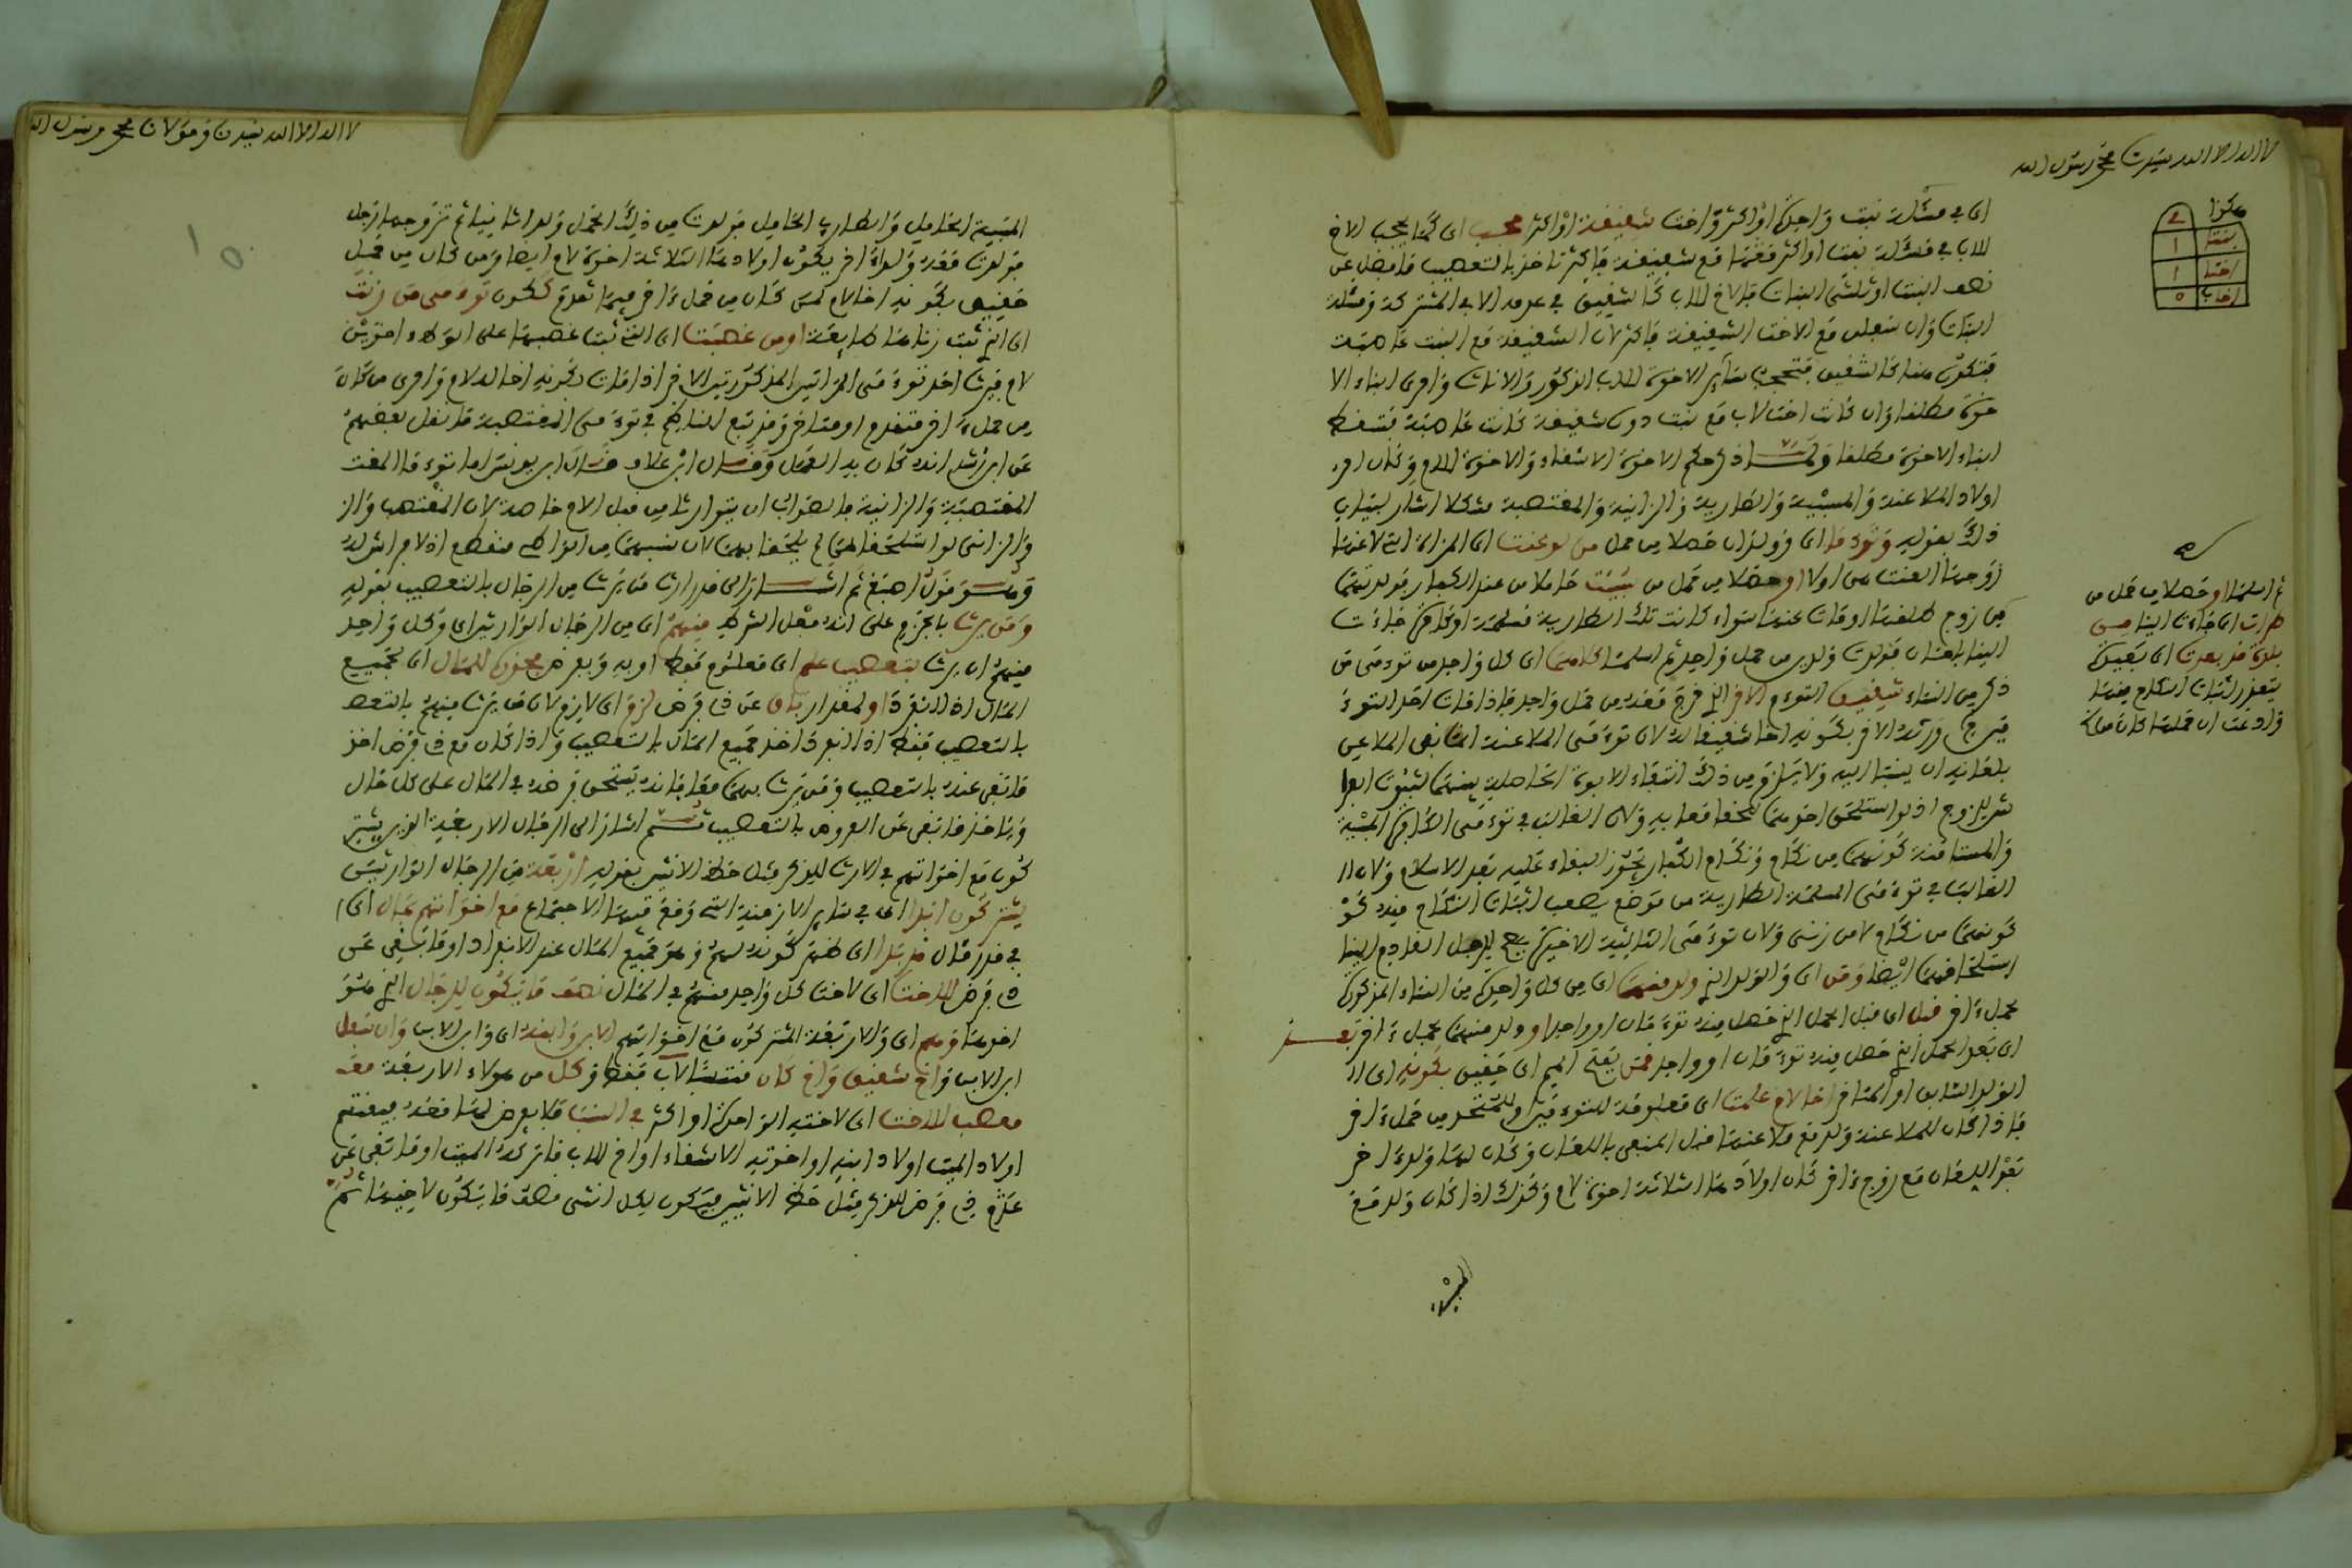 لا اله الا الله سيدنا محمد رسول الله
هكذا
٢
بنت ١
اخت ١
اخ لاب ٥
اى في مسئلة بنت واحدة او اكثر واخت شقيقة او اكثر يحجب اى كما يحجب الاخ
للاب في مسئلة بنت او اكثر فقها مع شقيقة فاكثر تاخذ بالتعصيب ما فضل عن
نصف البنت او ثلثي البنات فالاخ للاب كالشقيق في عدمه الا في المشتركة ومسئلة
البنات وان سفلن مع الاخت الشقيقة فاكثر لان الشقيقة مع البنت عاصبة
فتكون هنا كالشقيق فتحجب سائر الاخوة للاب الذكور والاناث واحرى ابناء الا
خوة مطلقا وان كانت اخت لاب مع بنت دون شقيقة كانت عاصبة فتسقط
ابناء الاخوة مطلقا ولما ذكر حكم الاخوة الاشقاء والاخوة للام وكان امر
اولاد الملاعنة والمسبية والطارية والزانية والمغتصبة مشكلا اشار لبيان
ذلك بقوله وتوءما اى وولدان حصلا من حمل من لوعنت اى المراة التى لاعنها
زوجها التعنت هى اولا او حصلا من حمل من سبيت حاملا من عند الكفار فولدتهما
من زوج طلقها او مات عنها سواء كانت تلك الطارية مسلمة او كافرة جاءت
الينا بامان فولدت ولدين من حمل واحد ثم اسلمت كلاهما اى كل واحد من توءمى من
ذكر من النساء شقيق التوءم الاخر الذى خرج معه من حمل واحد فاذا مات احد التوء
مين ورثه الاخر بكونه اخا شقيقا له لان توءمى الملاعنة انما نفى الملاعن
بلعانه ان ينسبا اليه ولا يلزم من ذلك انتفاء الابوة الحاصلة بينهما لثبوت الفرا
ش للزوج اذ لو استلحق احدهما لحقا معا به ولان الغالب في توءمى الكافرة المسبية
والمستامنة كونهما من نكاح ونكاح الكفار يجوز البقاء عليه بعد الاسلام ولان ا
الغالب في توءمى المسلمة الطارية من موضع يصعب اثبات النكاح فيه كو
كونهما من نكاح لا من زنى ولان توءمى الثلاثة الاخيرة يصح للرجل القادم الينا
استلحاقهما ايضا ومن اى والولد الذى ولد منهما اى من كل واحدة من النساء المذكورة
بحمل ءاخر قبل اى قبل الحمل الذى حصل منه توءمان او واحد او ولد منهما بحمل ءاخر بعد
اى بعد الحمل الذى حصل منه توءمان او واحد فمن بفتح الميم اى حقيق بكونه اى ا
الولد السابق او المتاخر اخا لام علمت اى معلومة للتوءمين او للمتحد من حمل ءاخر
فاذا كان للملاعنة ولد مع ملاعنها قبل المنفى باللعان وكان لها ولد ءاخر
بعد اللعان مع زوج ءاخر كان اولادها الثلاثة اخوة لام وكذلك اذا كان ولد مع
المسبية
ثم اسلمتا او حصلا من حمل من
طرات اى جاءت الينا من
بلدة قد بعدت اى بعيدة
يتعذر اثبات النكاح منها
وادعت ان حملها كان من نكاح
لا اله الا الله سيدنا ومولانا محمد رسول الله
المسبية الحامل والطارية الحامل فولدت من ذلك الحمل ولدا ثانيا ثم تزوجها رجل
فولدت معه ولدا ءاخر يكون اولادها الثلاثة اخوة لام ايضا ومن كان من حمل
حقيق بكونه اخا لام لمن كان من حمل ءاخر فيما تقدم ككون توءمى من زنت
اى التى ثبت زناها طائعة او من غصبت اى التى ثبت غصبها على الوطء اخوين
لام فيرث احد توءمى المراتين المذكورتين الاخر اذا مات بكونه اخا له لام واحرى من كان
من حمل ءاخر متقدم او متاخر وقد تبع الناظم في توءمى المغتصبة ما نقل بعضهم
عن ابن رشد انه كان به العمل وقال ابن علاق قال ابن يونس اما توءما المغت
المغتصبة والزانية فالصواب ان يتوارثا من قبل الام خاصة لان المغتصب والز
والزاني لو استلحقاهما لم يلحقا بهما لان نسبهما من الواطئ منقطع اذ لا فراش له
وهو قول اصبغ ثم اشار الى قدر ارث من يرث من الرجال بالتعصيب بقوله
ومن يرث بالجزم على انه فعل الشرط منهم اى من الرجال الوارثين اى وكل واحد
منهم ان يرث بتعصيب علم اى معلوم فقط او به وبفرض يحوز للمال اى لجميع
المال اذ انفرد او لمقدار باق عن ذى فرض لزم اى لازم لان من يرث منهم بالتعص
بالتعصيب فقط اذا انفرد اخذ جميع المال بالتعصيب واذا كان مع ذى فرض اخذ
ما بقى عنه بالتعصيب ومن يرث بهما معا فانه يستحق فرضه في المال على كل حال
وياخذ ما بقى عن الفروض بالتعصيب ثم اشار الى الرجال الاربعة الذين يشتر
كون مع اخواتهم في الارث للذكر مثل حظ الانثيين بقوله اربعة من الرجال الوارثين
يشتركون ابدا اى في سائر الازمنة التى وقع فيها الاجتماع مع اخواتهم بمال اى ا
في قدر مال قد بدا اى ظهر كونه لهم وهو جميع المال عند الانفراد او ما بقى عن
ذى فرض للاخت اى لاخت كل واحد منهم في المال نصف ما يكون للرجال الذى هو
اخوها وهم اى والاربعة المشتركون مع اخواتهم الابن وابنه اى وابن الابن وان سفل
ابن الابن واخ شقيق واخ كان منتسبا لاب فقط وكل من هولاء الاربعة معه
معصب للاخت اى لاخته الواحدة او اكثر في النسب فلا يفرض لها معه فيقتسم
اولاد الميت اولاد ابنه او اخوته الاشقاء او اخ للاب ما تركه الميت او ما بقى عن
عدم ذى فرض للذكر مثل حظ الانثيين فيكون لكل انثى نصف ما يكون لاخيها ثم